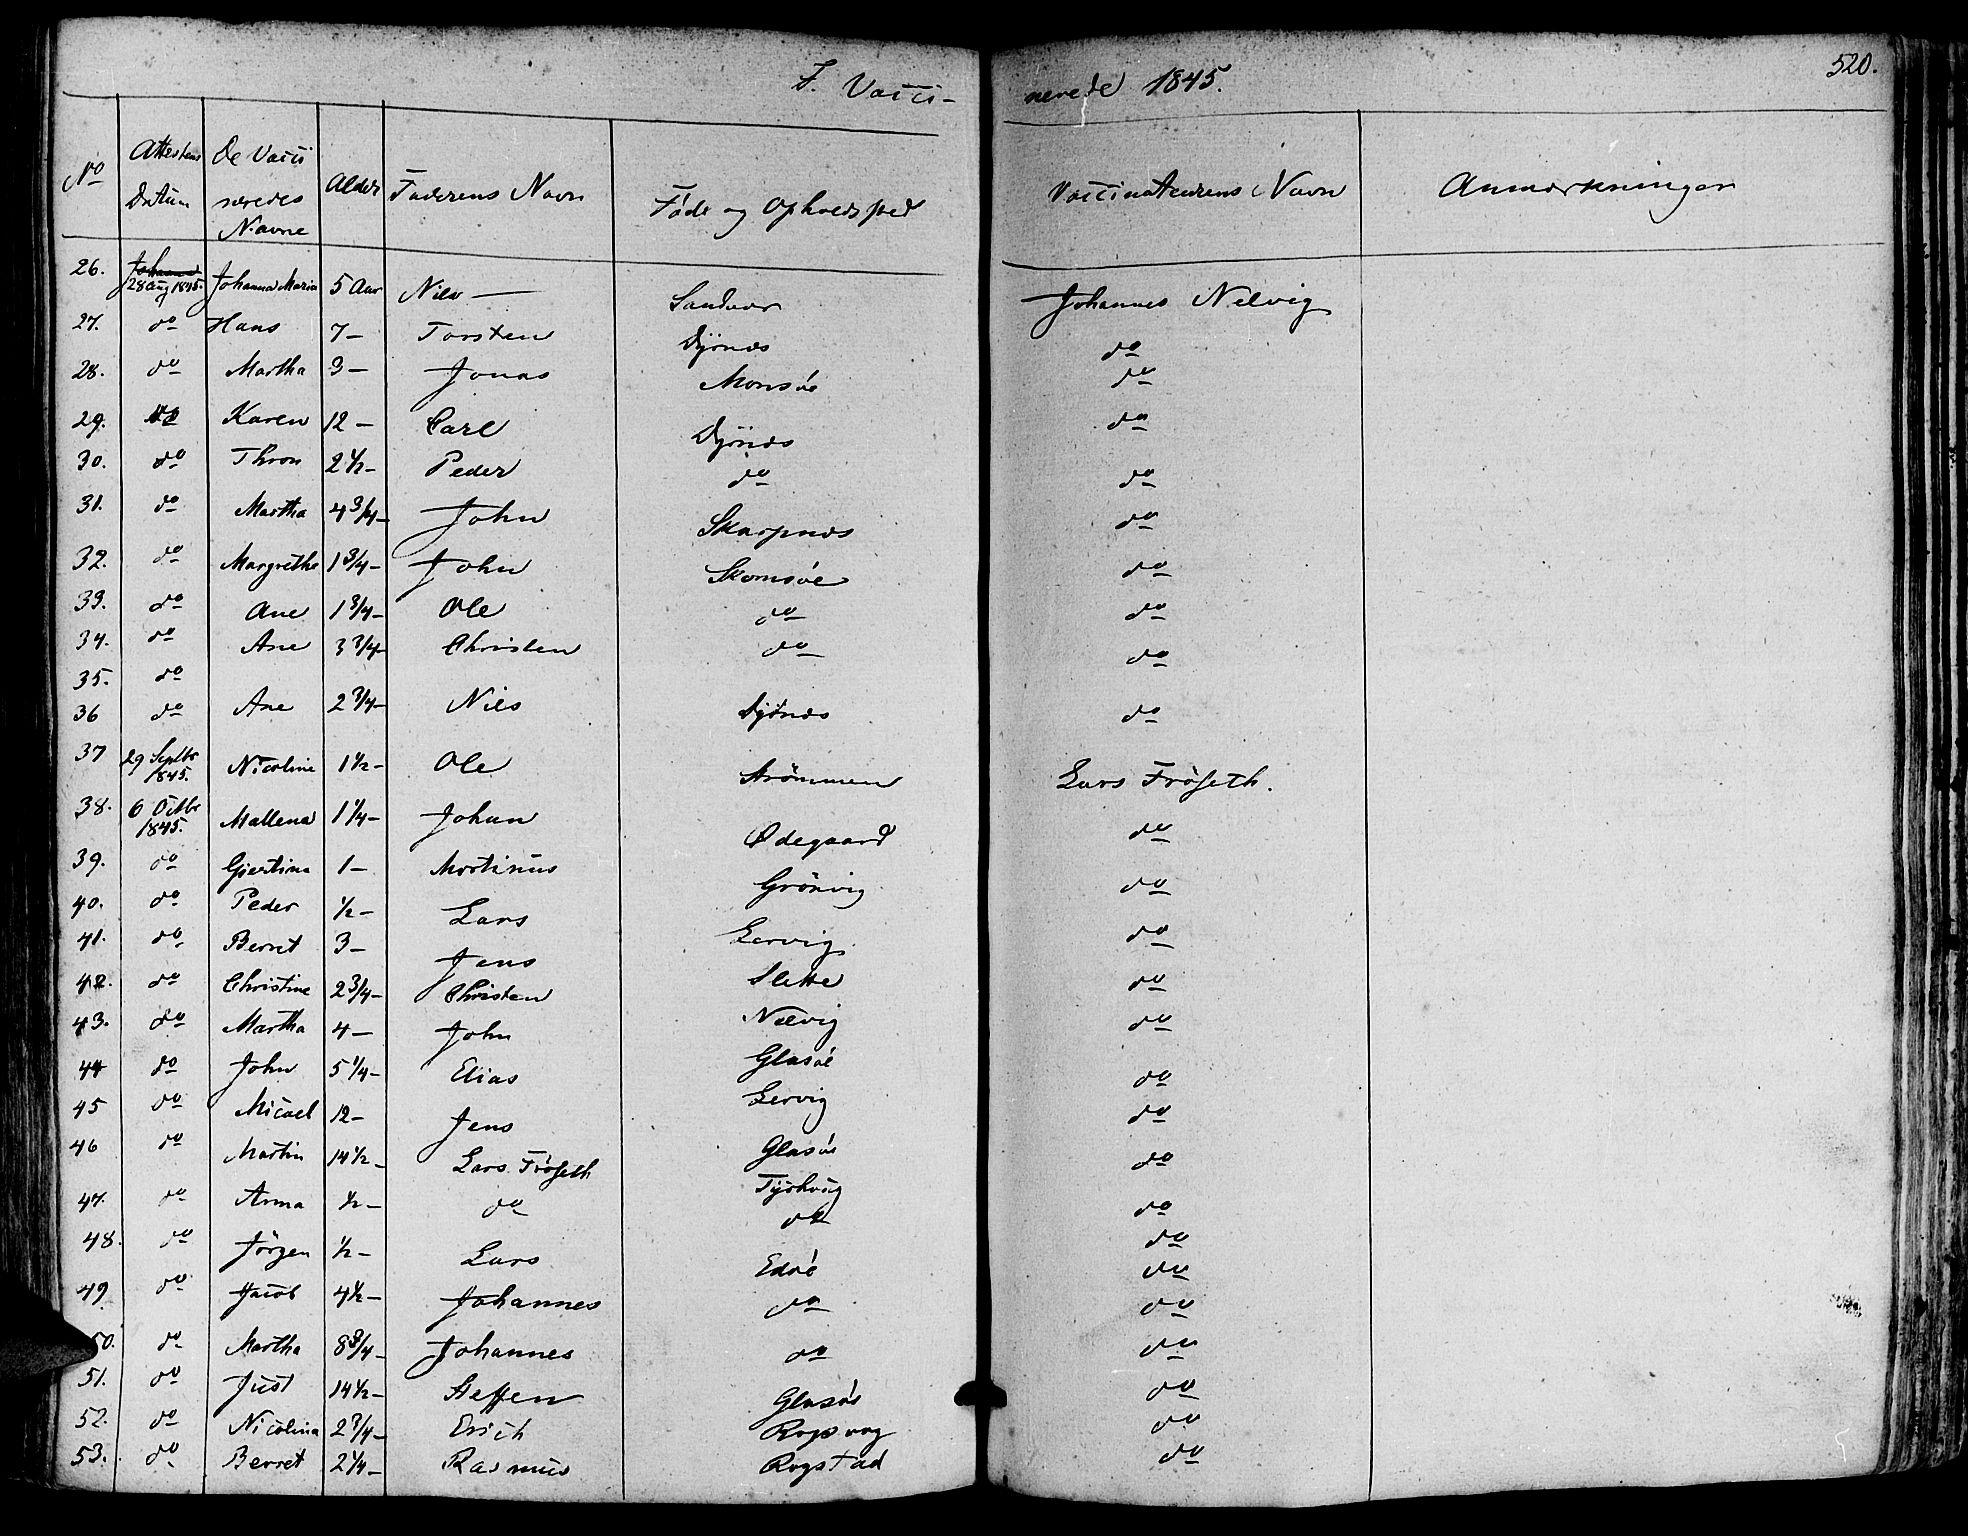 F. Vacci- nerede 1845. 520.
No | Attestens Datum | De Vacci neredes Navne | Alder | Faderens Navn | Føde og Opholdssted | Vaccinateurens Navn | Anmærkninger
26. | 28 Aug 1845. | Johanna Maria | 5 Aar | Nils — | Sandvær | Johannes Nelvig
27. | do | Hans | 7 — | Torsten | Dyrnæs | do
28. | do | Martha | 3 — | Jonas | Monsöe | do
29. | do | Karen | 12 — | Carl | Dyrnæs | do
30. | do | Thron | 2 1/2 — | Peder | do | do
31. | do | Martha | 4 3/4 — | John | Skarpnæs | do
32. | do | Margrethe | 1 3/4 — | John | Skomsöe | do
33. | do | Ane | 1 3/4 — | Ole | do | do
34. | do | Ane | 3 3/4 | Christen | do | do
35. | do
36 | do | Ane | 2 3/4 — | Nils | Dyrnæs | do
37 | 29 Septbr 1845. | Nicoline | 1 1/2 — | Ole | Strömmen | Lars Fröseth.
38. | 6 Octbr 1845. | Mallena | 1 1/4 — | Johan | Ødegaard | do
39. | do | Gjertina | 1 — | Mortinus | Grönvig | do
40. | do | Peder | 1/2 — | Lars | Lervig | do
41. | do | Berret | 3 — | Jens | Slette | do
42. | do | Christine | 2 3/4 — | Christen | Nelvig | do
43. | do | Martha | 4 — | John | Glasöe | do
44 | do | John | 5 1/4 — | Elias | Lervig | do
45 | do | Micael | 12 — | Jens | Glasöe | do
46 | do | Martin | 14 1/2 — | Lars Fröseth | do
47. | do | Anna | 1/2 — | do | do | do
48. | do | Jörgen | 1/2 — | Lars | Edöe | do
49 | do | Jacob | 4 1/2 — | Johannes | do | do
50. | do | Martha | 8 3/4 — | Johannes | do | do
51. | do | Just | 14 1/2 — | Steffen | Glasöe | do
52. | do | Nicolina | 2 3/4 — | Erich | do
53. | do | Berret | 2 1/4 — | Rasmus | Rogstad | do